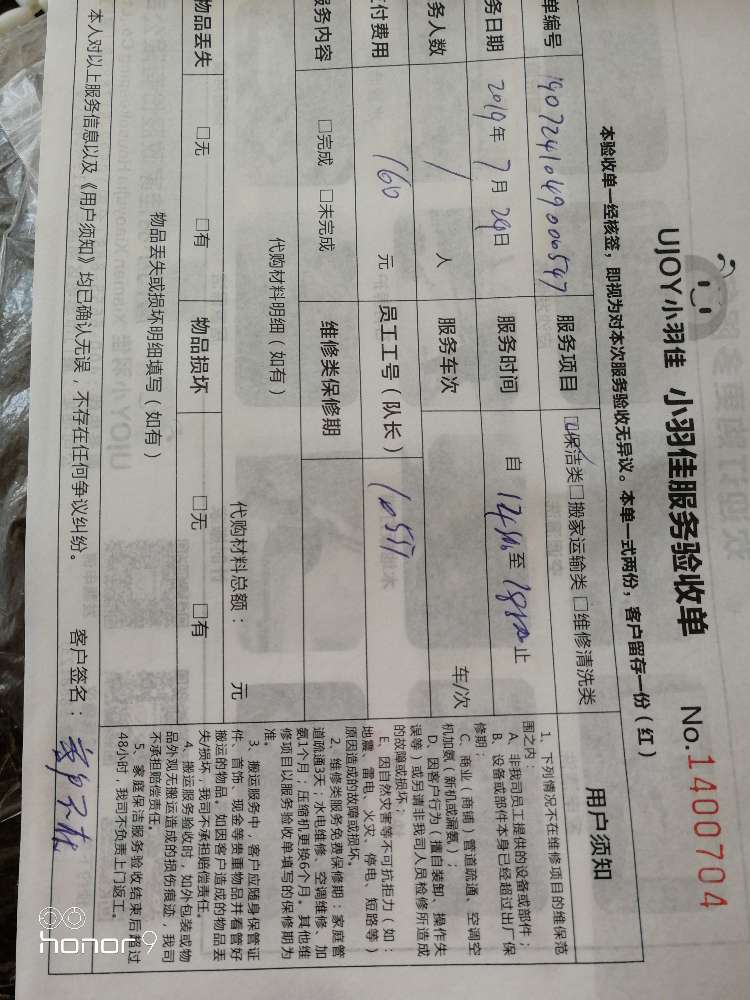 UJOY小羽佳 小羽佳服务验收单 No.1400704
本验收单一经核签，即视为对本次服务验收无异议。本单一式两份，客户留存一份（红）
单编号 1907241049006547 服务项目 ☑保洁类□搬家运输类□维修清洗类
务日期 2019年7月24日 服务时间 自 至 止
务人数 1 人 服务车次 车/次
付费用 160 元 员工工号（队长）
服务内容 □完成 □未完成 维修类保修期
代购材料明细（如有） 代购材料总额： 元
物品丢失 □无 □有 物品损坏 □无 □有
物品丢失或损坏明细填写（如有）
用户须知
1、下列情况不在维修项目的维保范
围之内：
A、非我司员工提供的设备或部件；
B、设备或部件本身已经超过出厂保
修期；
C、商业（商铺）管道疏通、空调空
机加氨（新机或漏氨）；
D、因客户行为（擅自装卸、操作失
误等）或另请非我司人员检修所造成
的故障或损坏；
E、因自然灾害等不可抗拒力（如：
地震、雷电、火灾、停电、短路等）
原因造成的故障或损坏。
2、维修类服务免费保修期：家庭管
道疏通3天；水电维修、空调维修、加
氨1个月；压缩机更换6个月。其他维
修项目以服务验收单填写的保修期为
准。
3、搬运服务中，客户应随身保管证
件、首饰、现金等贵重物品并看管好
搬运的物品。如因客户造成的物品丢
失/损坏，我司不承担赔偿责任。
4、搬运服务验收时，如外包装或物
品外观无搬运造成的损伤痕迹，我司
不承担赔偿责任。
5、家庭保洁服务验收结束后超过
48小时，我司不负责上门返工。
本人对以上服务信息以及《用户须知》均已确认无误，不存在任何争议纠纷。 客户签名：
honor9